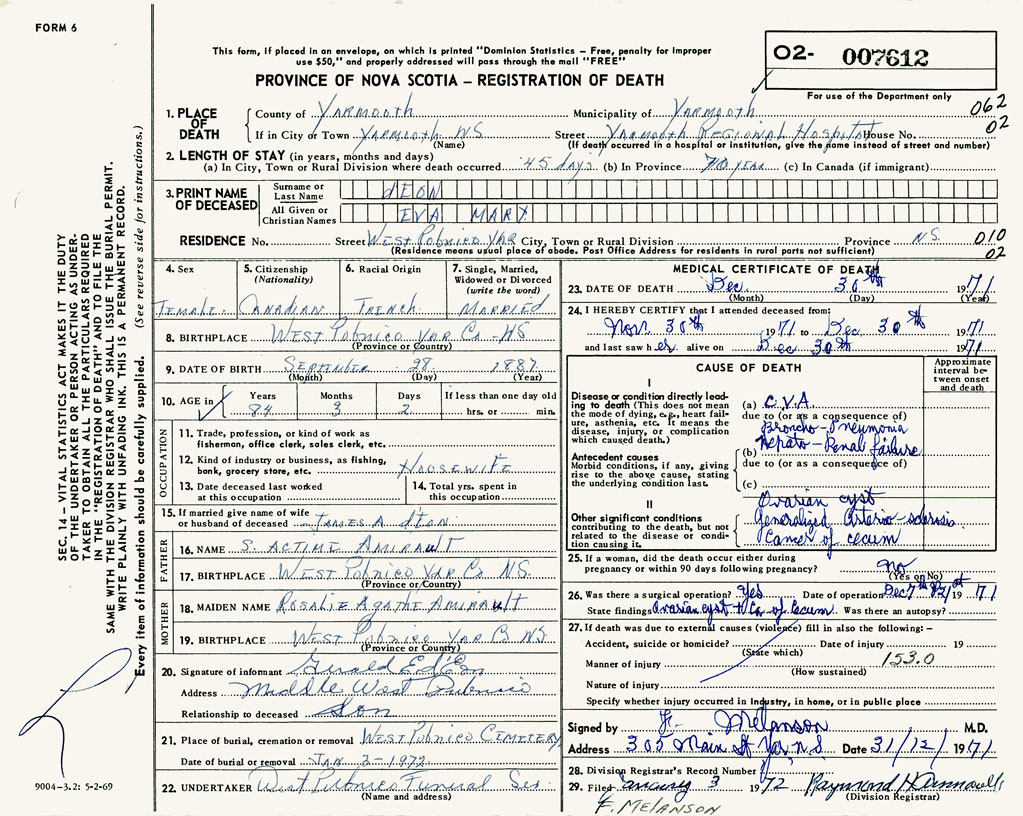 FORM 6
This form, if placed in an envelope, on which is printed "Dominion Statistics – Free, penalty for improper
use $50," and properly addressed will pass through the mail "FREE"
PROVINCE OF NOVA SCOTIA – REGISTRATION OF DEATH
O2- 007612
For use of the Department only
062
02
1. PLACE OF DEATH
County of Yarmouth Municipality of Yarmouth
If in City or Town Yarmouth NS Street Yarmouth Regional Hospital House No.
(Name) (If death occurred in a hospital or institution, give the name instead of street and number)
2. LENGTH OF STAY (in years, months and days)
(a) In City, Town or Rural Division where death occurred 45 days (b) In Province 70 year (c) In Canada (if immigrant)
3. PRINT NAME OF DECEASED
Surname or Last Name dEON
All Given or Christian Names EVA MARY
RESIDENCE No. Street West Pobnico Yar City, Town or Rural Division Province N.S. 010
(Residence means usual place of abode. Post Office Address for residents in rural parts not sufficient) 02
4. Sex
Female
5. Citizenship (Nationality)
Canadian
6. Racial Origin
French
7. Single, Married, Widowed or Divorced (write the word)
Married
8. BIRTHPLACE West Pobnico Yar Co NS
(Province or Country)
9. DATE OF BIRTH September 28 1887
(Month) (Day) (Year)
10. AGE in Years Months Days If less than one day old
84 3 2 hrs. or min.
OCCUPATION
11. Trade, profession, or kind of work as
fisherman, office clerk, sales clerk, etc.
12. Kind of industry or business, as fishing,
bank, grocery store, etc. Housewife
13. Date deceased last worked
at this occupation
14. Total yrs. spent in
this occupation
15. If married give name of wife
or husband of deceased James A. dEon
FATHER
16. NAME S. Actime Amirault
17. BIRTHPLACE West Pobnico Yar Co NS.
(Province or Country)
MOTHER
18. MAIDEN NAME Rosalie Agathe Amirault
19. BIRTHPLACE West Pobnico Yar Co NS
(Province or Country)
20. Signature of informant Gerald E d'Eon
Address Middle West Pubnico
Relationship to deceased Son
21. Place of burial, cremation or removal West Pobnico Cemetery
Date of burial or removal Jan 2-1972
22. UNDERTAKER West Pubnico Funeral Ser
(Name and address)
MEDICAL CERTIFICATE OF DEATH
23. DATE OF DEATH Dec. 30th 1971
(Month) (Day) (Year)
24. I HEREBY CERTIFY that I attended deceased from:
Nov. 30th 1971 to Dec 30th 1971
and last saw her alive on Dec 30th 1971
CAUSE OF DEATH
Approximate interval between onset and death
I
Disease or condition directly leading
to death (This does not mean
the mode of dying, e.g., heart failure,
asthenia, etc. It means the
disease, injury, or complication
which caused death.)
(a) C.V.A.
due to (or as a consequence of)
Broncho-Pneumonia
Hepato-Renal failure
Antecedent causes
Morbid conditions, if any, giving
rise to the above cause, stating
the underlying condition last.
(b)
due to (or as a consequence of)
(c)
II
Other significant conditions
contributing to the death, but not
related to the disease or condition
causing it.
Ovarian cyst
Generalized Arterio-sclerosis
Cancer of cecum
25. If a woman, did the death occur either during
pregnancy or within 90 days following pregnancy? no
(Yes or No)
26. Was there a surgical operation? Yes Date of operation Dec 7th 1971
State findings Ovarian cyst & Ca of Cecum Was there an autopsy?
27. If death was due to external causes (violence) fill in also the following:–
Accident, suicide or homicide? Date of injury 19
(State which)
Manner of injury 153.0
(How sustained)
Nature of injury
Specify whether injury occurred in industry, in home, or in public place
Signed by F. Melanson M.D.
Address 305 Main St Yar, N.S Date 31/12/1971
28. Division Registrar's Record Number
29. Filed January 3 1972 Raymond H
(Division Registrar)
F. MELANSON
SEC. 14 – VITAL STATISTICS ACT MAKES IT THE DUTY
OF THE UNDERTAKER OR PERSON ACTING AS UNDERTAKER
TO OBTAIN ALL THE PARTICULARS REQUIRED
IN THE "REGISTRATION OF DEATH" AND TO FILE THE
SAME WITH THE DIVISION REGISTRAR WHO SHALL ISSUE THE BURIAL PERMIT.
WRITE PLAINLY WITH UNFADING INK. THIS IS A PERMANENT RECORD.
Every item of information should be carefully supplied. (See reverse side for instructions.)
9004-3.2: 5-2-69